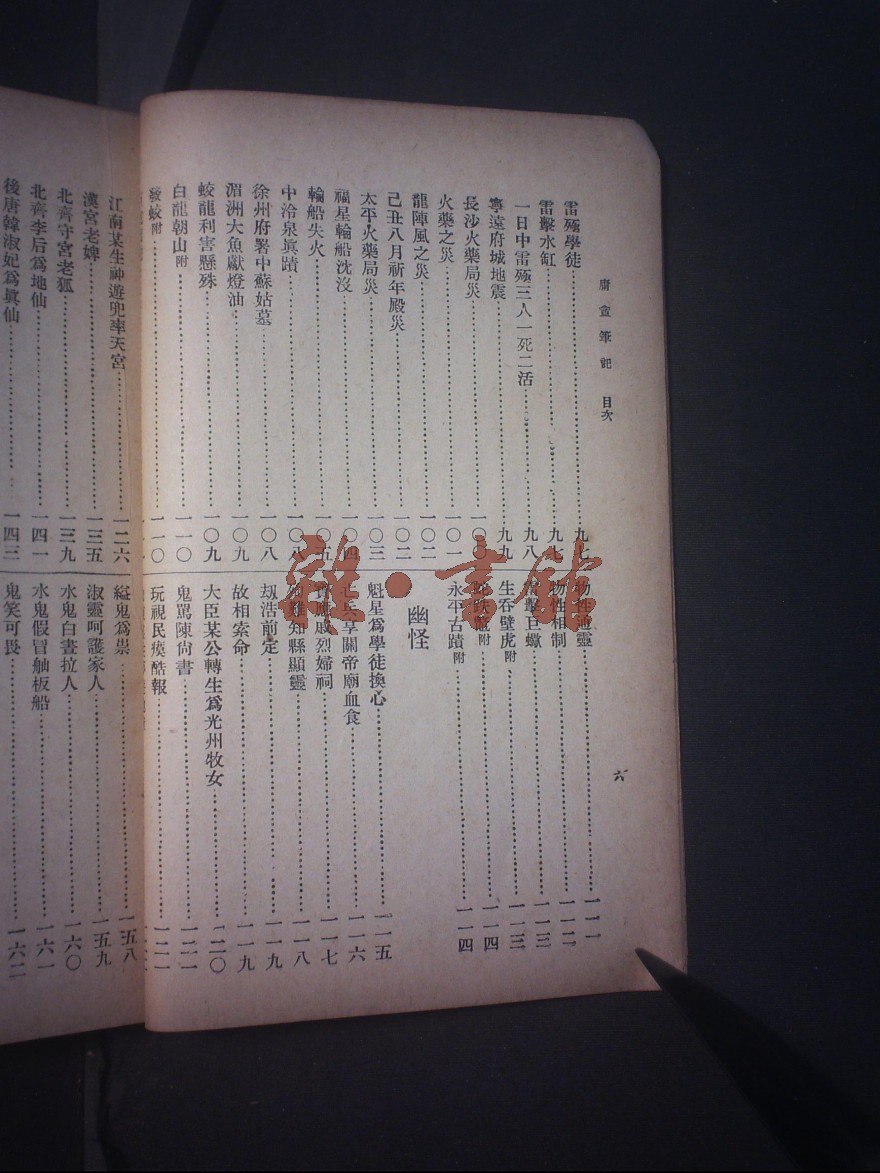 庸盦筆記 目次
六
雷殛學徒……九七
雷擊水缸……九七
一日中雷殛三人一死二活……九八
寧遠府城地震……九九
長沙火藥局災……一〇〇
火藥之災……一〇一
龍陣風之災……一〇二
己丑八月祈年殿災……一〇二
太平火藥局災……一〇三
福星輪船沈沒……一〇四
輪船失火……一〇五
中泠泉眞蹟……一〇八
徐州府署中蘇姑墓……一〇八
湄洲大魚獻燈油……一〇九
蛟龍利害懸殊……一〇九
白龍朝山附……一一〇
發蛟附……一一〇
物性通靈……一一一
物性相制……一一二
雷擊巨蠍……一一三
生吞壁虎附……一一三
附……一一四
永平古蹟附……一一四
幽怪
魁星爲學徒換心……一一五
亡兵享關帝廟血食……一一六
戚烈婦祠……一一七
難知縣顯靈……一一八
劫浩前定……一一九
故相索命……一一九
大臣某公轉生爲光州牧女……一二〇
鬼罵陳尙書……一二一
玩視民瘼酷報……一二一
江南某生神遊兜率天宮……一二六
漢宮老婢……一三五
北齊守宮老狐……一三九
北齊李后爲地仙……一四一
後唐韓淑妃爲眞仙……一四三
縊鬼爲祟……一五八
淑靈呵護家人……一五九
水鬼白晝拉人……一六〇
水鬼假冒舢板船……一六一
鬼笑可畏……一六二
雜·書館